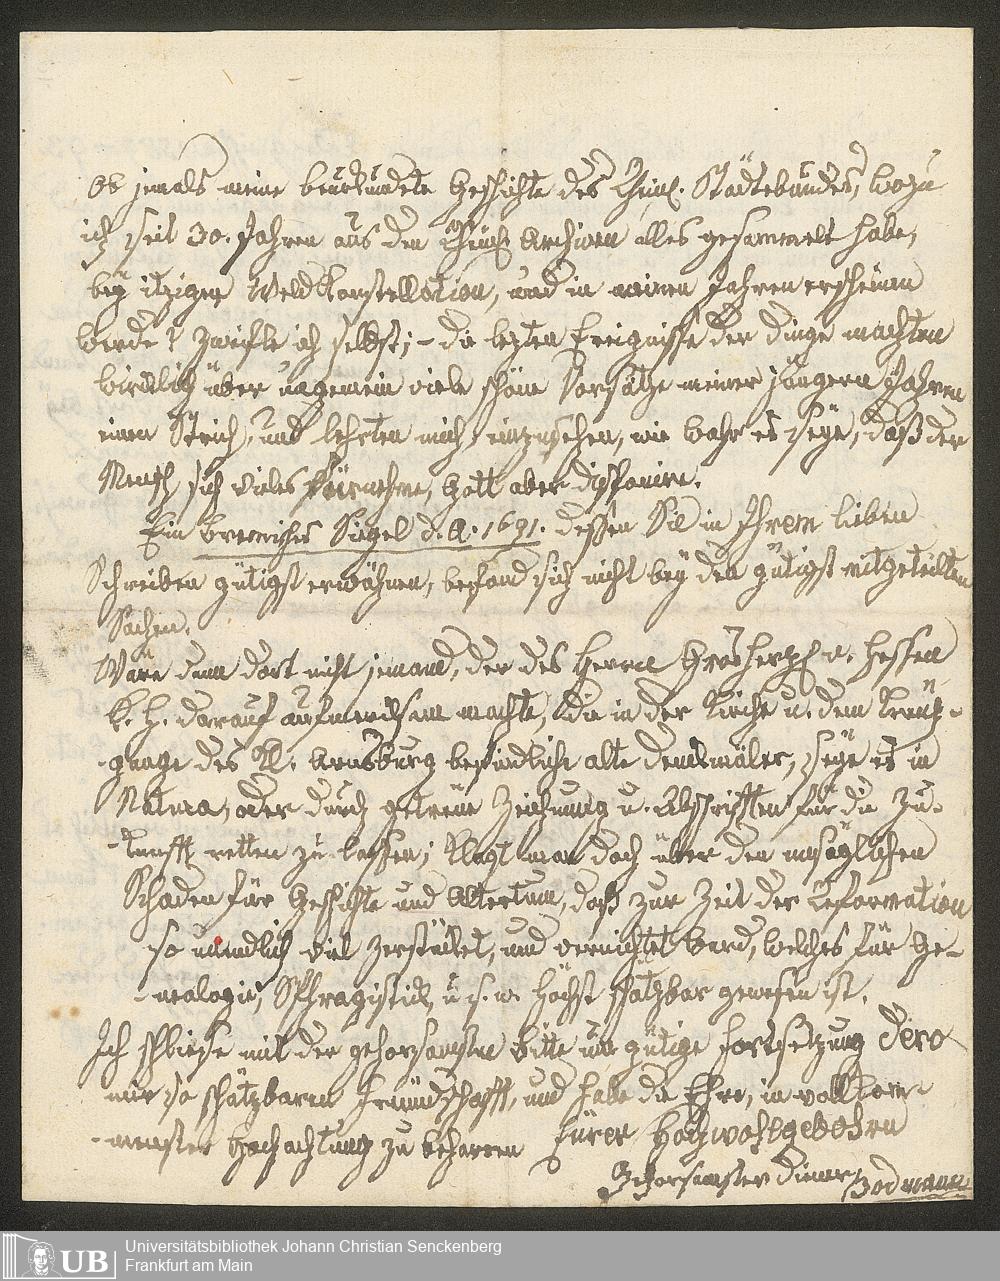 Ob jemals meine beurkundete Geschichte des Rhein. Städtebundes, wozu
ich seit 30. Jahren aus den Rhein. Archiven alles gesammelt habe,
bey itziger Weldkonstellation, und in meinen Jahren erscheinen
werde? zweifle ich selbst; – die lezten Ereignisse der Dinge machten
wirklich über ungemein viele schöne Vorsätze meiner jüngern Jahren
einen Strich, und lehrten mich einzusehen, wie wahr es seye, daß der
Mensch sich vieles fürnehme, Gott aber disponire.
Ein Siegel d. A. 1691. dessen Sie in Ihrem lieben
Schreiben gütigst erwähnen, befand sich nicht bey den gütigst mitgeteilten
Sachen.
Wäre dann dort nicht jemand, der des Herrn Grosherzgs v. Hessen
K. H. darauf aufmerksam machte, die in der Kirche u. dem Kreuz-
gange des Kl. Arnsburg befindliche alte Denkmäler, seye es in
Natura, oder durch getreue Zeichnung u. Abschrifften für die Zu-
kunfft retten zu lassen; klagt man doch über den unsäglichen
Schaden für Geschichte und Altertum, daß zur Zeit der Reformation
so unendlich viel zerstöret, und vernichtet ward, welches für Ge-
nealogie, Sphragistick u. s. w. höchst schätzbar gewesen ist.
Ich schliesse mit der gehorsamsten Bitte um gütige Fortsetzung Dero
mir so schätzbaren Freundschafft, und habe die Ehre, in vollkom-
menster Hochachtung zu beharren Eurer Hochwohlgebohrn
Gehorsamster Diener Bodmann
Universitätsbibliothek Johann Christian Senckenberg
Frankfurt am Main
UB